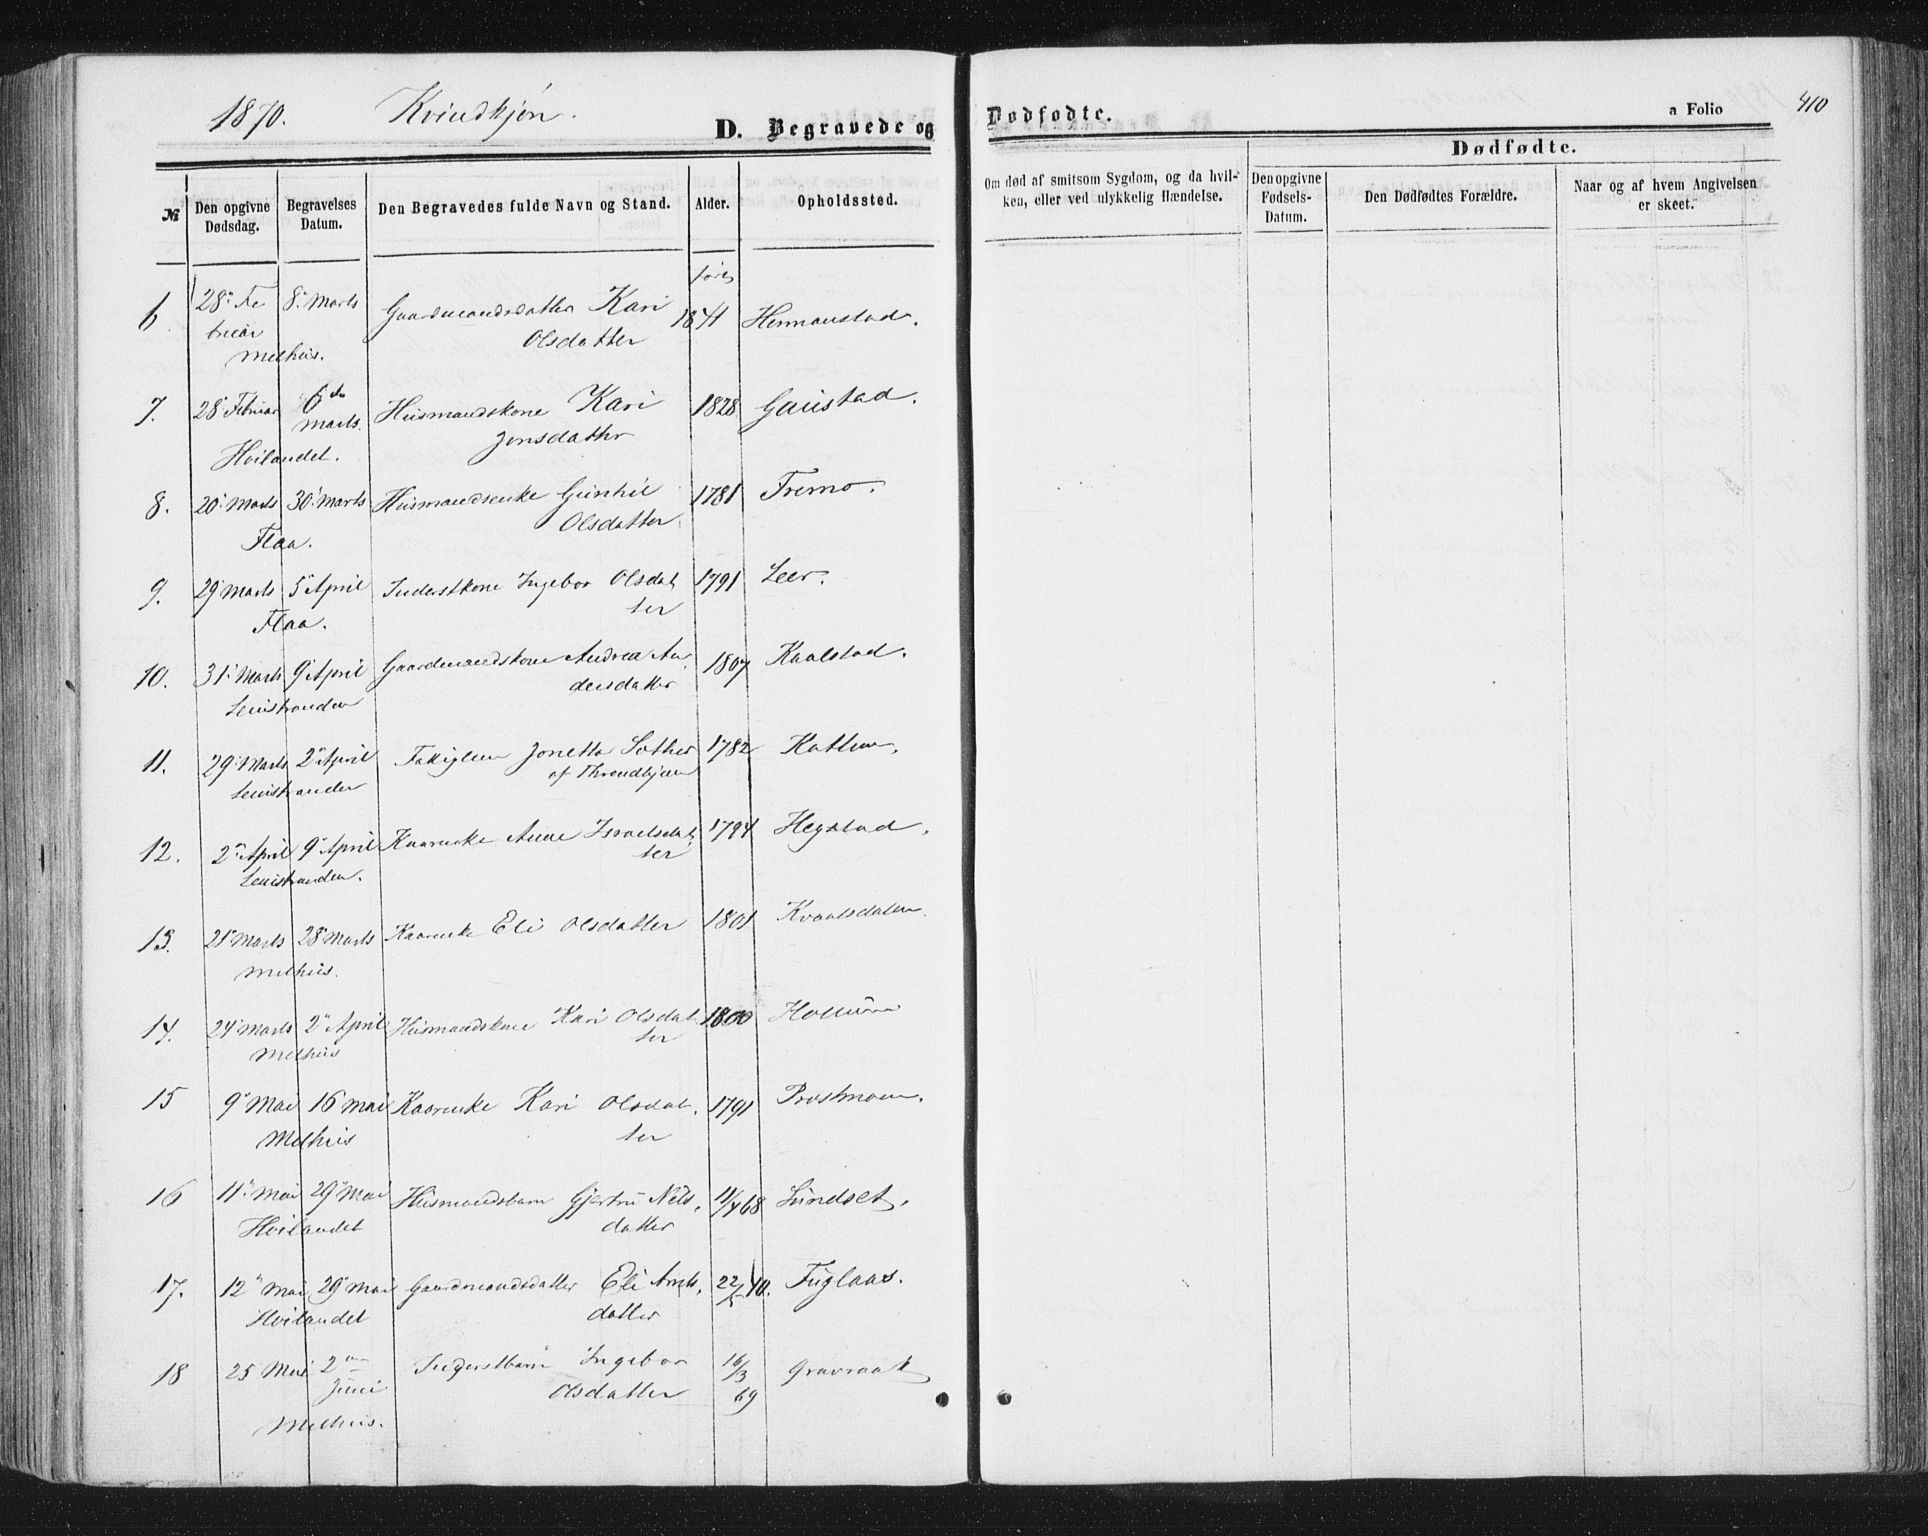 1870. Kvindkjøn.
D. Begravede og Dødfødte.
a Folio 410
Dødfødte.
№
Den opgivne Dødsdag.
Begravelses Datum.
Den Begravedes fulde Navn og Stand.
Alder.
Opholdssted.
Om død af smitsom Sygdom, og da hvil-
ken, eller ved ulykkelig Hændelse.
Den opgivne Fødsels-Datum.
Den Dødfødtes Forældre.
Naar og af hvem Angivelsen er skeet.
6 28. Fe 8. Marts Gaardmandsdatter Kari 1841 Hermanstad.
bruar Olsdatter
Melhus.
7. 28 Februar 6te Marts. Husmandskone Kari 1828 Gaustad.
Jonsdatter
Høilandet.
8. 20 Marts 30 Marts Husmandsenke Gunhil 1781 Fremo.
Olsdatter
Flaa.
9. 29 Marts 5 April Inderstkone Ingebor Olsdat 1791 Leer.
ter
Flaa.
10. 31 Marts 9 April Gaardmandskone Andrea An 1807 Kaalstad.
dersdatter
Leinstranden
11. 29 Marts 2 April Fattiglem Jonetta 1782 Kattem.
af Throndhjem
Leinstranden
12. 2 April 9 April Kaarenke Anne Israelsdat 1794 Hegstad.
ter
Leinstranden.
13. 21 Marts 28 Marts Kaarenke Eli Olsdatter 1801 Kvaalsdalen.
Melhus.
14. 24 Marts 2 April Husmandskone Kari Olsdat 1800
ter
Melhus
15 9 Mai 16 Mai Kaarenke Kari Olsdat. 1791 Prestmoen.
ter
Melhus
16 11 Mai 29 Mai Husmandsbarn Gjertru Nils. 11/4 68 Lundset.
datter
Høilandet
17. 12 Mai 29 Mai Gaardmandsdatter Eli Arnts. 22/5 40. Fuglaas.
datter
Høilandet
18 25 Mai 2den Juni Inderstbarn Ingebor 16/3 69 Gravraak
Olsdatter
Melhus.